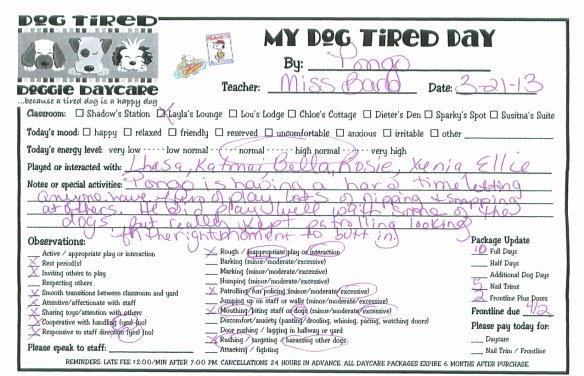 DOG TIRED
DOGGIE DAYCARE
...because a tired dog is a happy dog
PEANUTS
MY DOG TIRED DAY
By: Pongo
Teacher: Miss Barb Date: 3-21-13
Classroom: ☐ Shadow's Station ☒ Kayla's Lounge ☐ Lou's Lodge ☐ Chloe's Cottage ☐ Dieter's Den ☐ Sparky's Spot ☐ Susitna's Suite
Today's mood: ☐ happy ☐ relaxed ☐ friendly ☐ reserved ☐ uncomfortable ☐ anxious ☐ irritable ☐ other
Today's energy level: very low ····· low normal ····· normal ····· high normal ····· very high
Played or interacted with: Lhasa, Katmai Bella, Rosie, Xenia Ellie
Notes or special activities: Pongo is having a hard time letting
anyone have of play lots of nipping & snapping
at others. He did play well with some of the
dogs, but really kept patrolling looking
for the right moment to butt in.
Observations:
Active / appropriate play or interaction
X Rest period(s)
X Inviting others to play
Respecting others
X Smooth transitions between classroom and yard
X Attentive/affectionate with staff
X Sharing toys/attention with others
X Cooperative with handling (yes) (no)
X Responsive to staff direction (yes) (no)
Please speak to staff:
X Rough / inappropriate play or interaction
Barking (minor/moderate/excessive)
Marking (minor/moderate/excessive)
Humping (minor/moderate/excessive)
X Patrolling/fun policing (minor/moderate/excessive)
Jumping up on staff or walls (minor/moderate/excessive)
X Mouthing/biting staff or dogs (minor/moderate/excessive)
Discomfort/anxiety (panting/drooling, whining, pacing, watching doors)
Door rushing / lagging in hallway or yard
X Rushing / targeting / harassing other dogs
Attacking / fighting
Package Update
10 Full Days
Half Days
Additional Dog Days
5 Nail Trims
2 Frontline Plus Doses
Frontline due 4/2
Please pay today for:
Daycare
Nail Trim / Frontline
REMINDERS: LATE FEE $2.00/MIN AFTER 7:00 PM. CANCELLATIONS 24 HOURS IN ADVANCE. ALL DAYCARE PACKAGES EXPIRE 6 MONTHS AFTER PURCHASE.